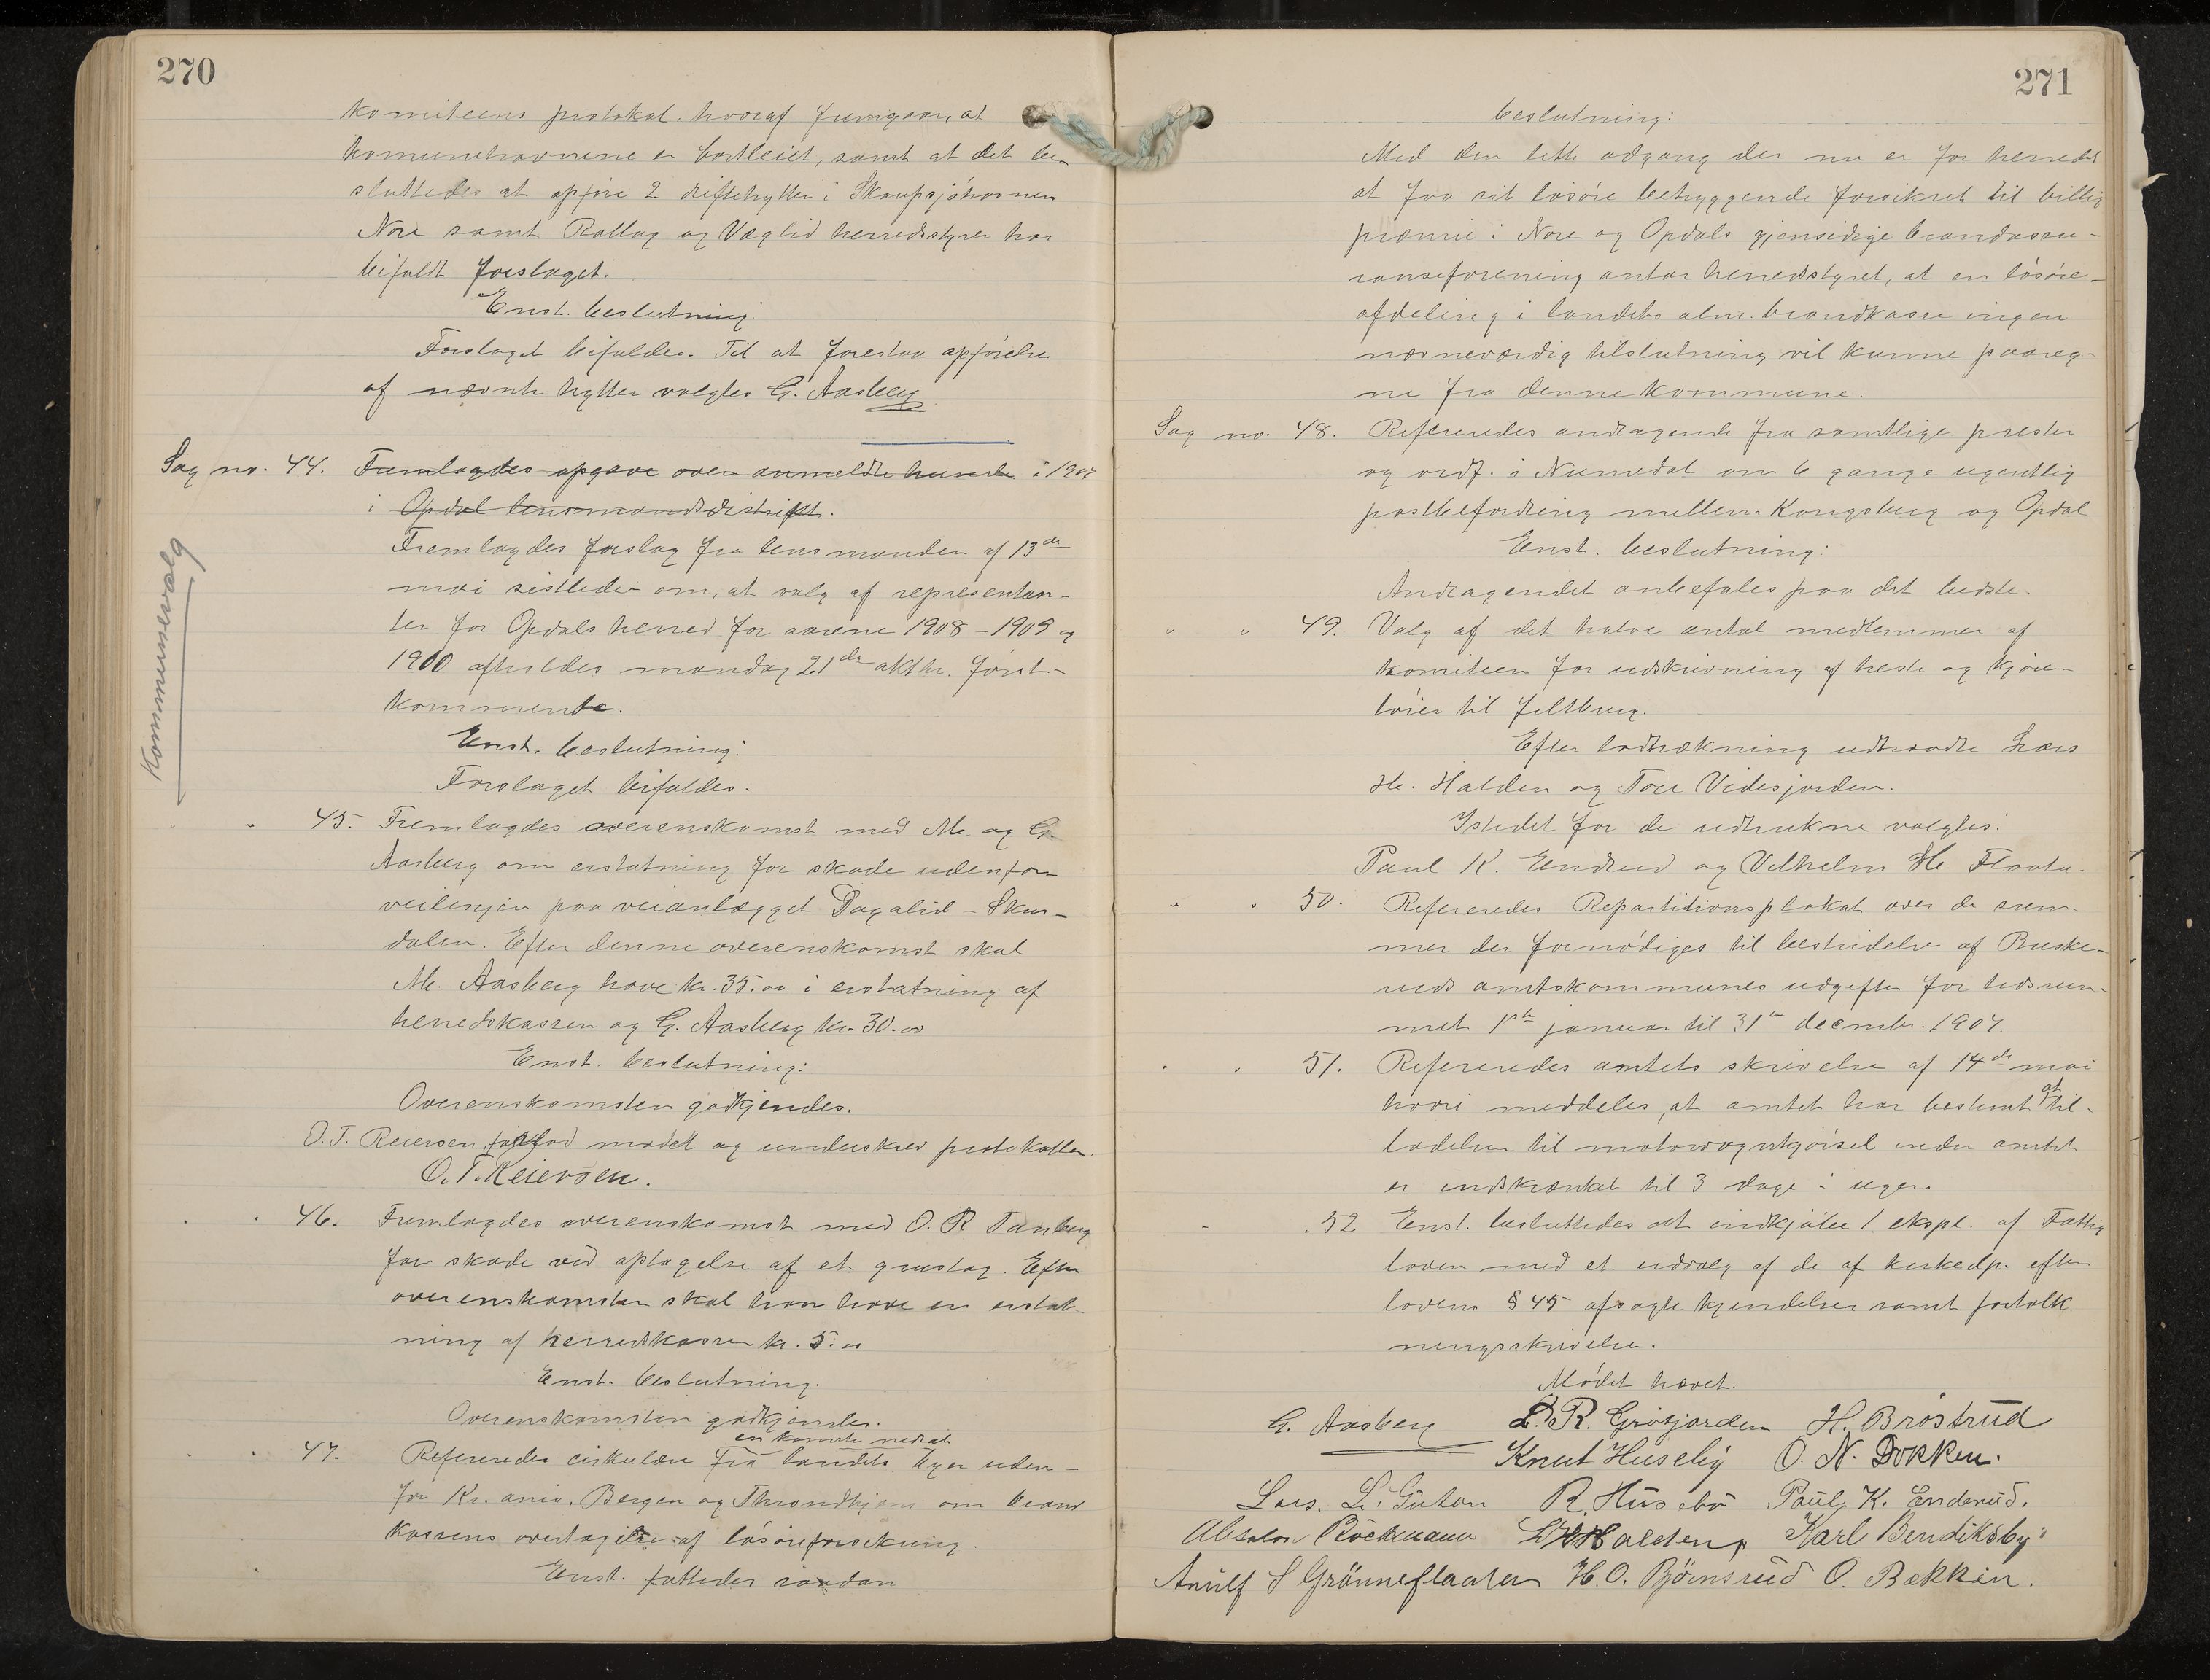 270
komiteens protokol hvoraf fremgaar, at
komunehavnene er bortleiet, samt at det be-
sluttedes at opføre 2 driftehytter i Skaupsjöhavnen
Nore samt Rollag og Væglid herredsstyrer har
bifaldt forslaget.
Enst. beslutning:
Forslaget bifaldes. Til at forestaa opførelse
af nævnte hytter valgtes G. Aasberg
Sag no. 44. Fremlagdes opgave over anmeldte hunde i 1907
i Opdal lensmandsdistrikt.
Fremlagdes forslag fra lensmanden af 13de
mai sistleden om, at valg af representan-
ter for Opdals herred for aarene 1908 - 1909 og
1910 afholdes mandag 21de oktbr. først-
kommende.
Enst. beslutning:
Forslaget bifaldes.
Kommunevalg
" 45. Fremlagdes overenskomst med M. og G.
Aasberg om erstatning for skade udenfor
veilinjen paa veianlægget Dagalid - Skur-
dalen. Efter denne overenskomst skal
M. Aasberg have kr. 35.00 i erstatning af
herredskassen og G. Aasberg kr. 30.00
Enst. beslutning:
Overenskomsten godkjendes.
O.T. Reiersen forlod mødet og underskrev protokollen.
O. T. Reiersen.
" " 46. Fremlagdes overenskomst med O. R. Tanberg
for skade ved optagelse af et grustag. Efter
overenskomsten skal han have en erstat-
ning af herredskassen kr. 5.00
Enst. beslutning.
Overenskomsten godkjendes.
en komite nedsat
" " 47. Refereredes cirkulære fra landets byer uden-
for Kr.ania, Bergen og Throndhjem om brand
kassens overtagelse af løsøreforsikring.
Enst. fattedes saadan
271
beslutning:
Med den lette adgang der nu er for herredet
at faa sit løsøre betryggende forsikret til billig
præmie i Nore og Opdals gjensidige brandassu-
ranseforening antar herredsstyret, at en løsøre-
afdeling i landets alm. brandkasse ingen
nævneværdig tilslutning vil kunne paareg-
ne fra denne kommune.
Sag no. 48. Refereredes andragende fra samtlige prester
og ordf. i Numedal om 6 gange ugentlig
postbefordring mellem Kongsberg og Opdal
Enst. beslutning:
Andragendet anbefales paa det bedste.
" " 49. Valg af det halve antal medlemmer af
komiteen for udskrivning af heste og kjøre-
tøier til feltbrug.
Efter lodtrækning udtraadte Lars
H. Halden og Tore Videsjorden.
Istedet for de udtrukne valgtes:
Paul K. Endrud og Vilhelm H. Flaata.
" " 50. Refereredes Repartitionsplakat over de sum-
mer der fornødiges til bestridelse af Buske-
ruds amtskommunes udgifter for tidsrum-
met 1ste januar til 31te decembr. 1907.
" " 51. Refereredes amtets skrivelse af 14de mai
hvori meddeles, at amtet har bestemt at til-
ladelsen til motorvognkjørsel inden amtet
er indskrænket til 3 dage i ugen
" " 52 Enst. besluttedes at indkjøbe 1 ekspl. af Fattig
loven med et udvalg af de af kirkedp. efter
lovens § 45 afsagte kjendelser samt fortolk
ningsskrivelser.
Mødet hævet.
G. Aasberg L. R. Grösjorden H. Bröstrud
Knut Huseby O. N. Dokken.
Lars. L. Guton R. Husebö Paul K. Enderud.
Absalon Böckmann L H Halden, Karl Bendiksby
Anulf S Grönneflaaten H. O. Björnsrud O. Bakken.